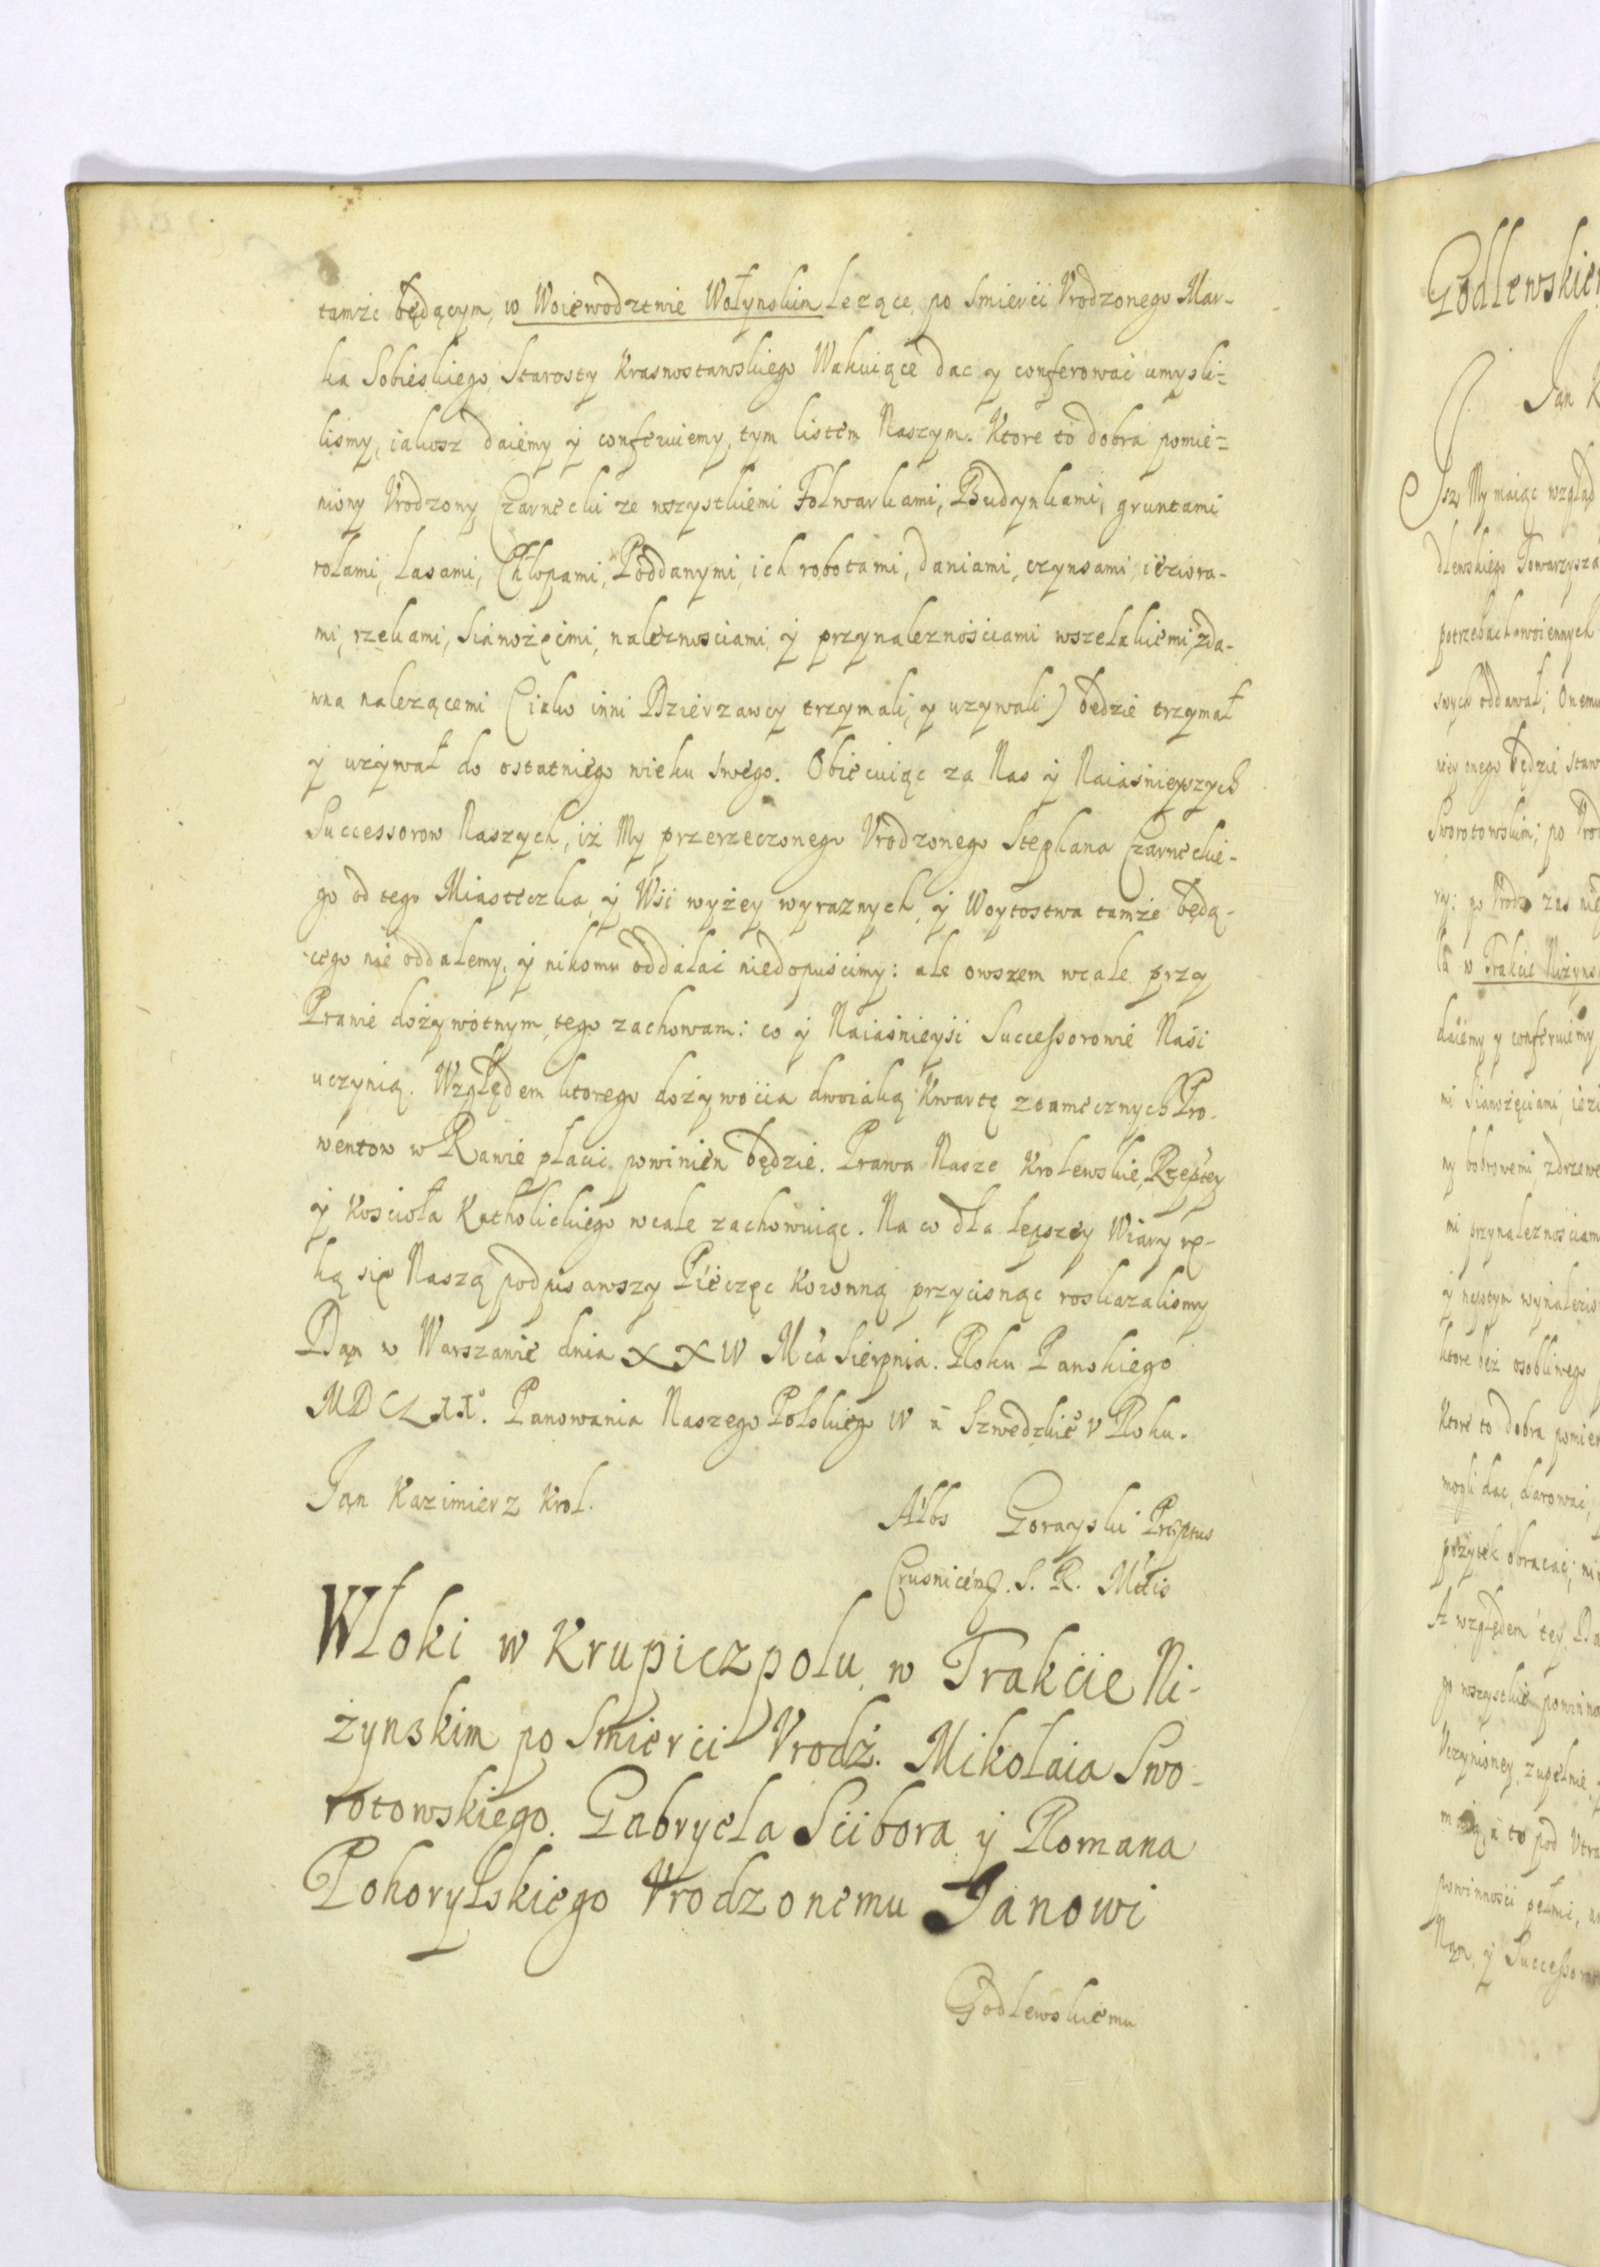 tamże będącym, w Woiewodztwie Wołynskim leżące, po smierci Vrodzonego Mar-
ka Sobieskiego Starosty Krasnostawskiego Wakuiące dac y conferować umysli-
lismy, iakosz daiemy y conferuiemy tym listem Naszym. Ktore to dobra pomie-
niony Vrodzony Czarnecki ze wszystkiemi Folwarkami, Budynkami, gruntami
rolami, lasami, Chłopami, Poddanymi, ich robotami, daniami, czynsami, ieziora-
mi, rzekami, sianożęćmi, naleznosciami y przynaleznościami wszelakiemi, zda-
wna nalezącemi (iako inni Dzierzawcy trzymali, y uzywali) będzie trzymał
y używał do ostatniego wieku swego. Obiecuiąc za Nas y Naiaśnieyszych
Successorow Naszych, iż My przerzeczonego Vrodzonego Stephana Czarneckie-
go od tego Miasteczka, y Wsi wyżey wyraznych, y Woytostwa tamże będą-
cego nie oddalemy, y nikomu oddalać niedopuścimy: ale owszem wcale przy
Prawie dożywotnym tego zachowam: co y Naiaśnieyśi Successorowie Naśi
uczynią. Względem ktorego dożywocia dwoiaką Kwartę ztamecznych Pro-
wentow w Rawie płacic powinien będzie. Prawa Nasze Krolewskie, Rzeptey
y Kościoła Katholickiego wcale zachowuiąc. Na co dla lepszey Wiary rę-
ką się Naszą podpisawszy Pieczęc Koronną przycisnąc roskazalismy
Dan w Warszawie dnia XXIV Mca Sierpnia. Roku Panskiego
MDCLII°. Panowania Naszego Polskiego IV á Szwedzkie V Roku.
Jan Kazimierz Krol.
Albs Gorayski Prptus
Crusnicen. S. R. Mttis
Włoki w Krupiczpolu, w Trakcie Ni-
żynskim po Smierci Vrodź. Mikołaia Swo-
rotowskiego. Gabryela Scibora y Romana
Pohorylskiego Vrodzonemu Janowi
Godlewskiemu
Godlewskie
Jan K
Isz My maiąc wzgląd
dlewskiego Towarzysza
potrzebach woiennych
swych oddawał; Onemu
onego będzie staw
Sworotowskim; po Vrod
w Trakcie Niżyns
daiemy y conferuiemy
mi Sianożęciami, iezi
ny bobrowemi,
mi przynaleznościam
ktore bez osobliwego
Ktore to dobra pomie
mogli dac, darowac,
pożytek obracać; ni
A względem tey Da
go wszystkie powinno
Vczynioney, zupełnie
to pod Vtra
powinności pełnić,
Nam, y Successorom